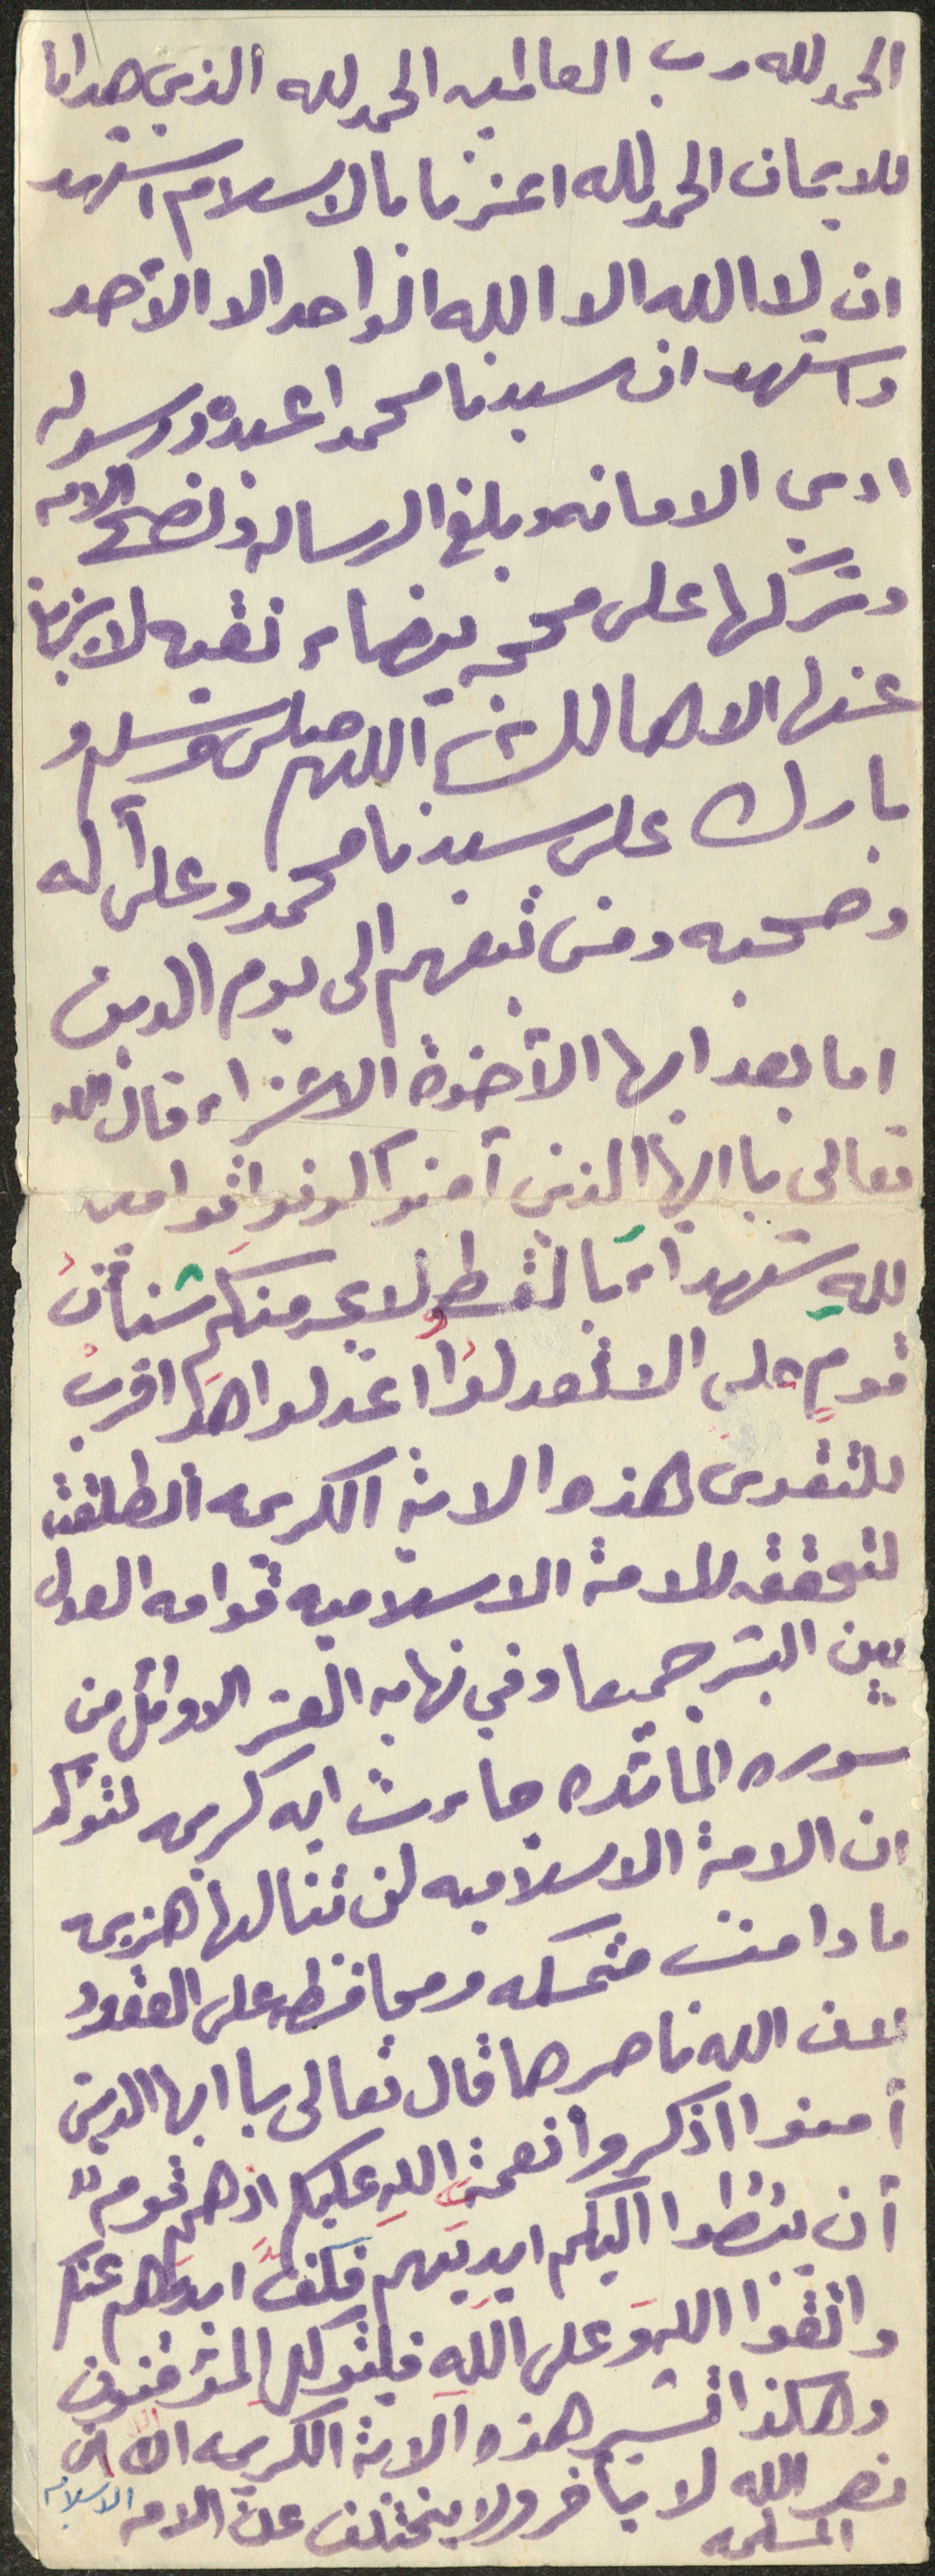 الحمد لله رب العالمين الحمد لله الذي هدانا
للايمان الحمد لله اعزنا بالاسلام اشهد
ان لا الله الا الله الواحد الا الأحد
واشهد ان سيدنا محمدا عبده ورسوله
ادى الامانه وبلغ الرساله ونصح الامه
وتركها على محجه بيضاء نقيه لا يزيغ
عنها الا هالك اللهم صلى وسلم و
بارك على سيدنا محمد وعلى أله
وصحبه ومن تبعهم الى يوم الدين
اما بعد ايها الأخوة الاعزاء قال الله
تعالى يا ايها الذين أمنو كونوا قوامين
لله شهداء بالقسط ولا يجرمنكم شنأن
قومٍ على الا تعدلوا اعدلوا هو اقرب
للتقوى هذه الاية الكريمه انطلقت
لتحقق للامة الاسلاميه قوامه العدل
بين البشر جميعا وفي نهايه العشر الاوائل من
سوره المائده جاءت ايه كريمه لتؤكد
ان الامة الاسلاميه لن تنالها هزيمه
ما دامت متمسكه ومحافظه على العقود
لان الله ناصرها قال تعالى يا ايها الذين
أمنوا اذكروا نعمة الله عليكم اذ هم قوم
أن يبسطوا اليكم ايديهم فكف ايديهم عنكم
واتقوا الله وعلى الله فليتوكل المؤمنون
وهكذا تشير هذه الاية الكريمه ان
نصر الله لا يتأخر ولا يتخلف عن الامه الاسلام
المسلمه